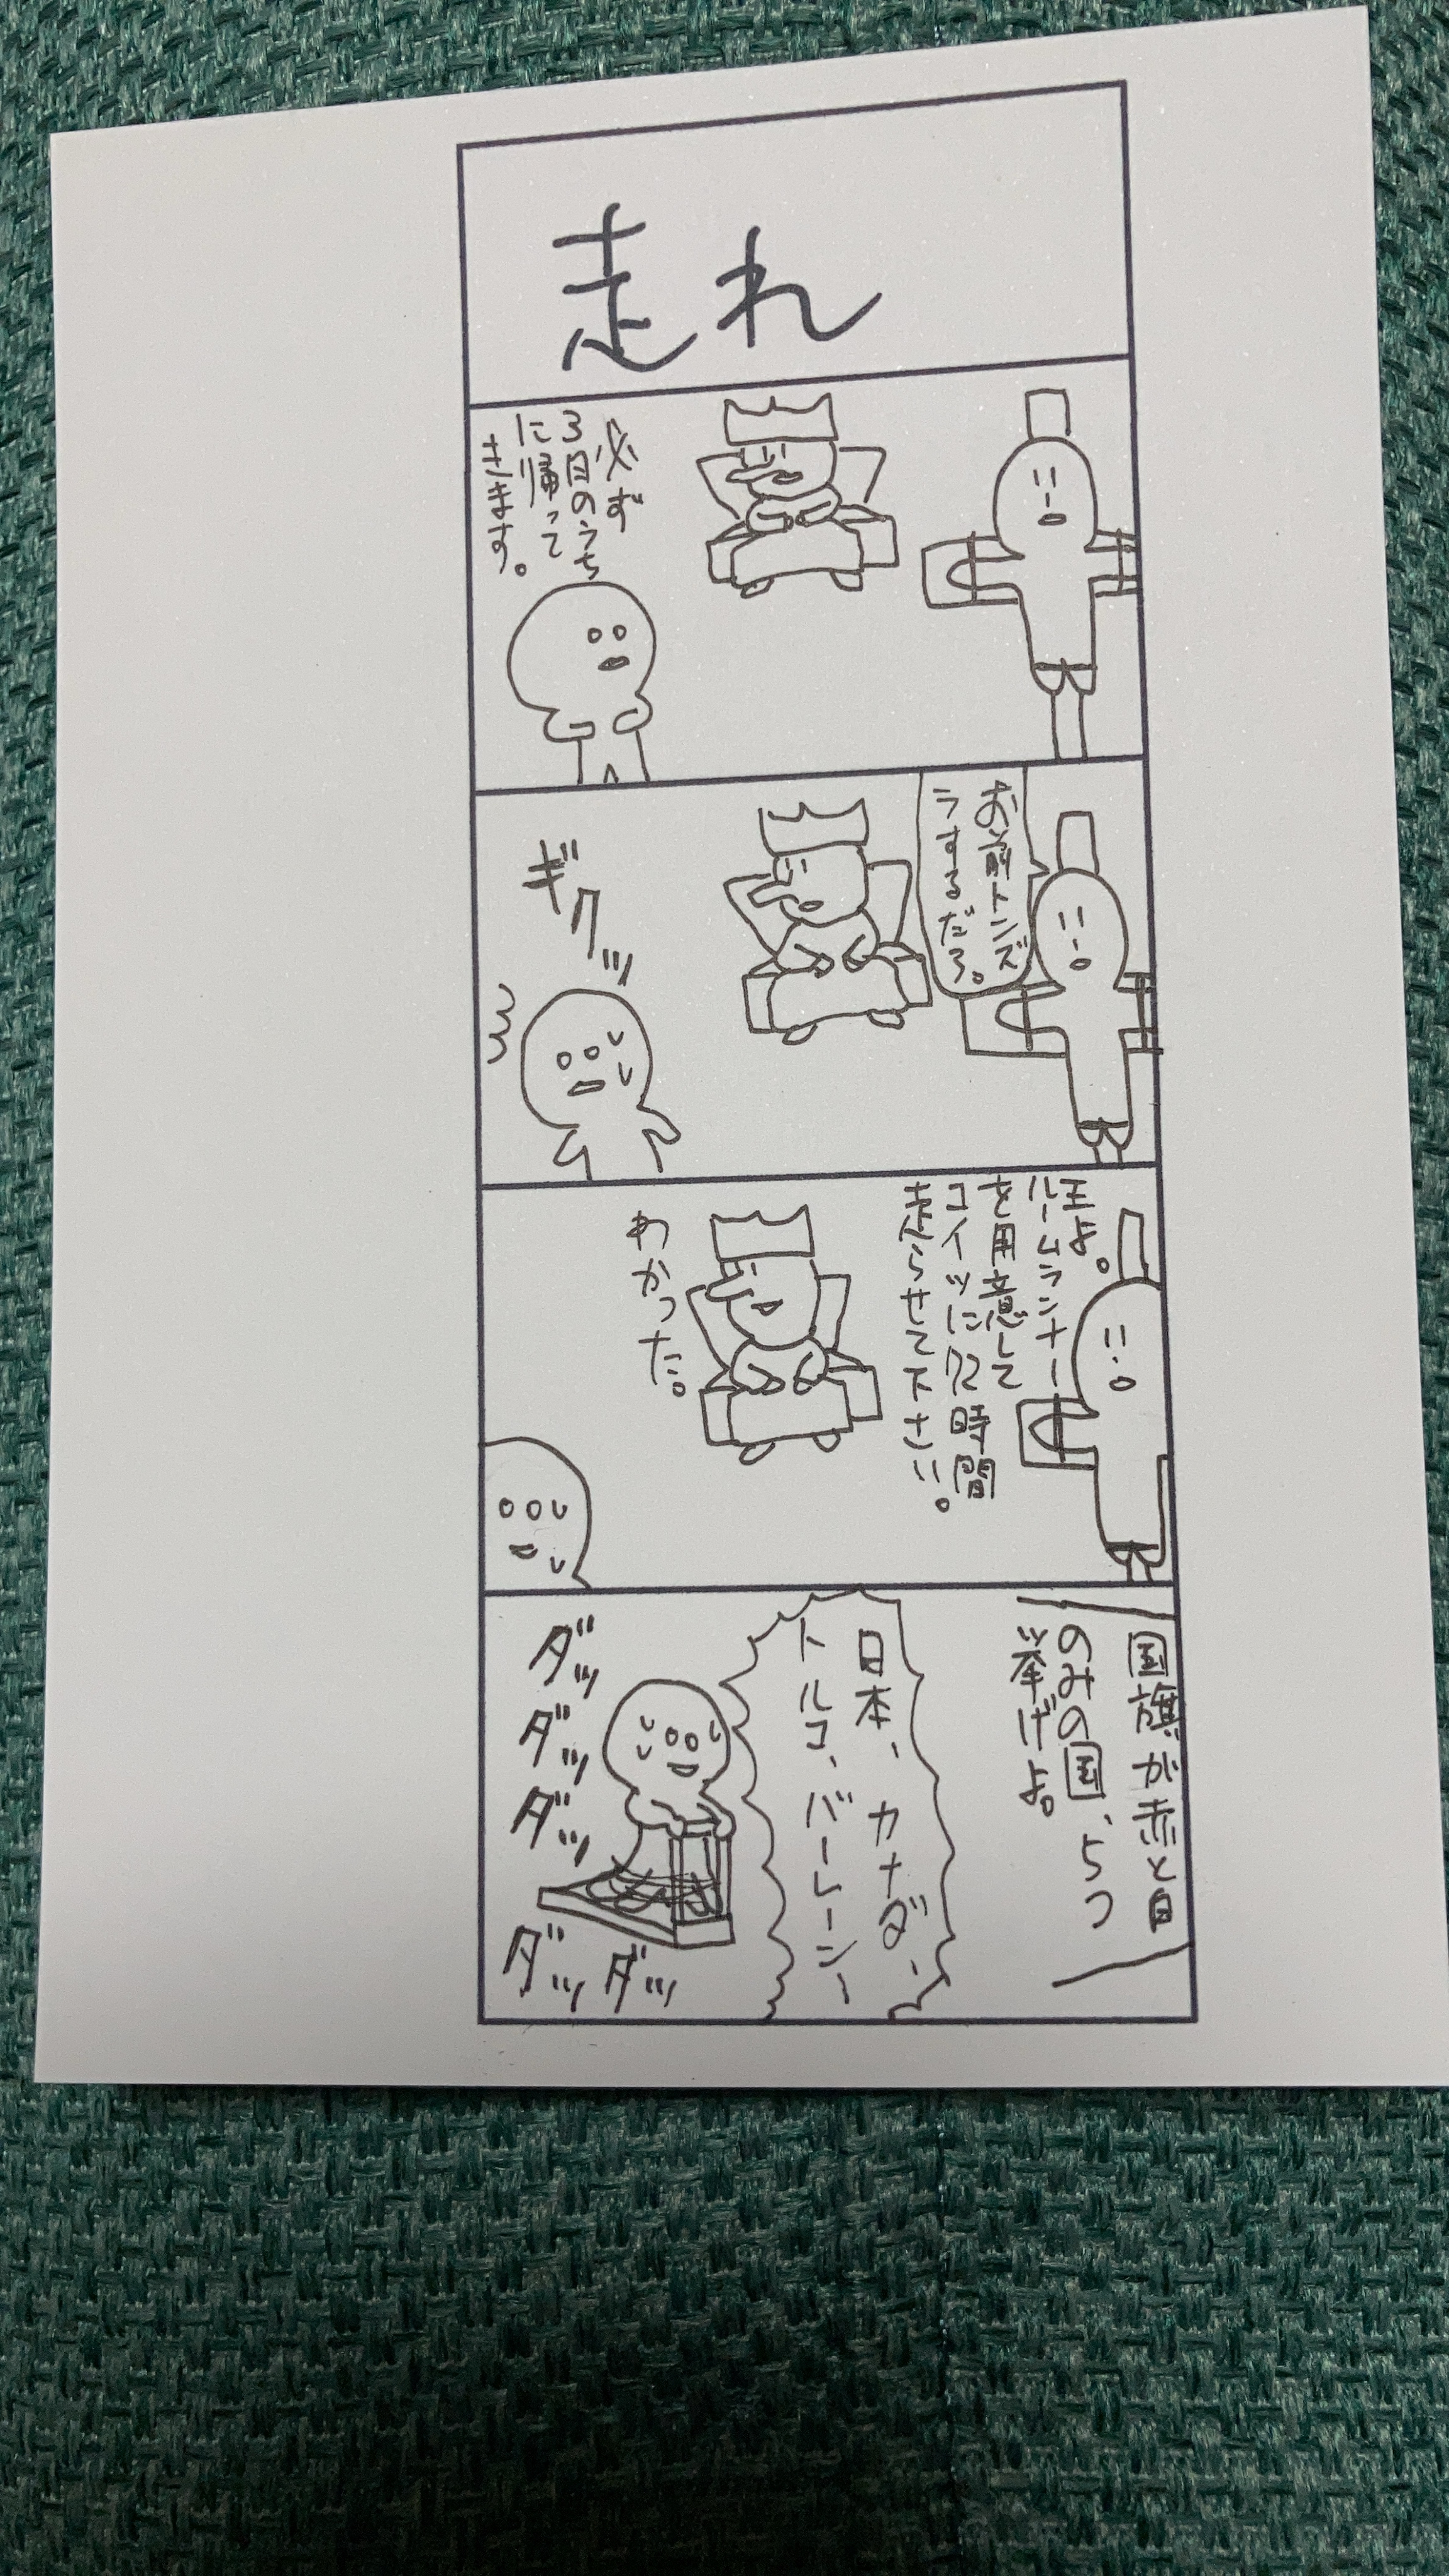 走れ
必ず
3日のうち
に帰って
きます。
お前トンズ
ラするだろ。
ギクッ
王よ。
ルームランナー
を用意して
コイツに72時間
走らせて下さい。
わかった。
国旗が赤と白
のみの国、5つ
挙げよ。
日本、カナダ、
トルコ、バーレーン、
ダッ
ダッ
ダッ
ダッ
ダッ